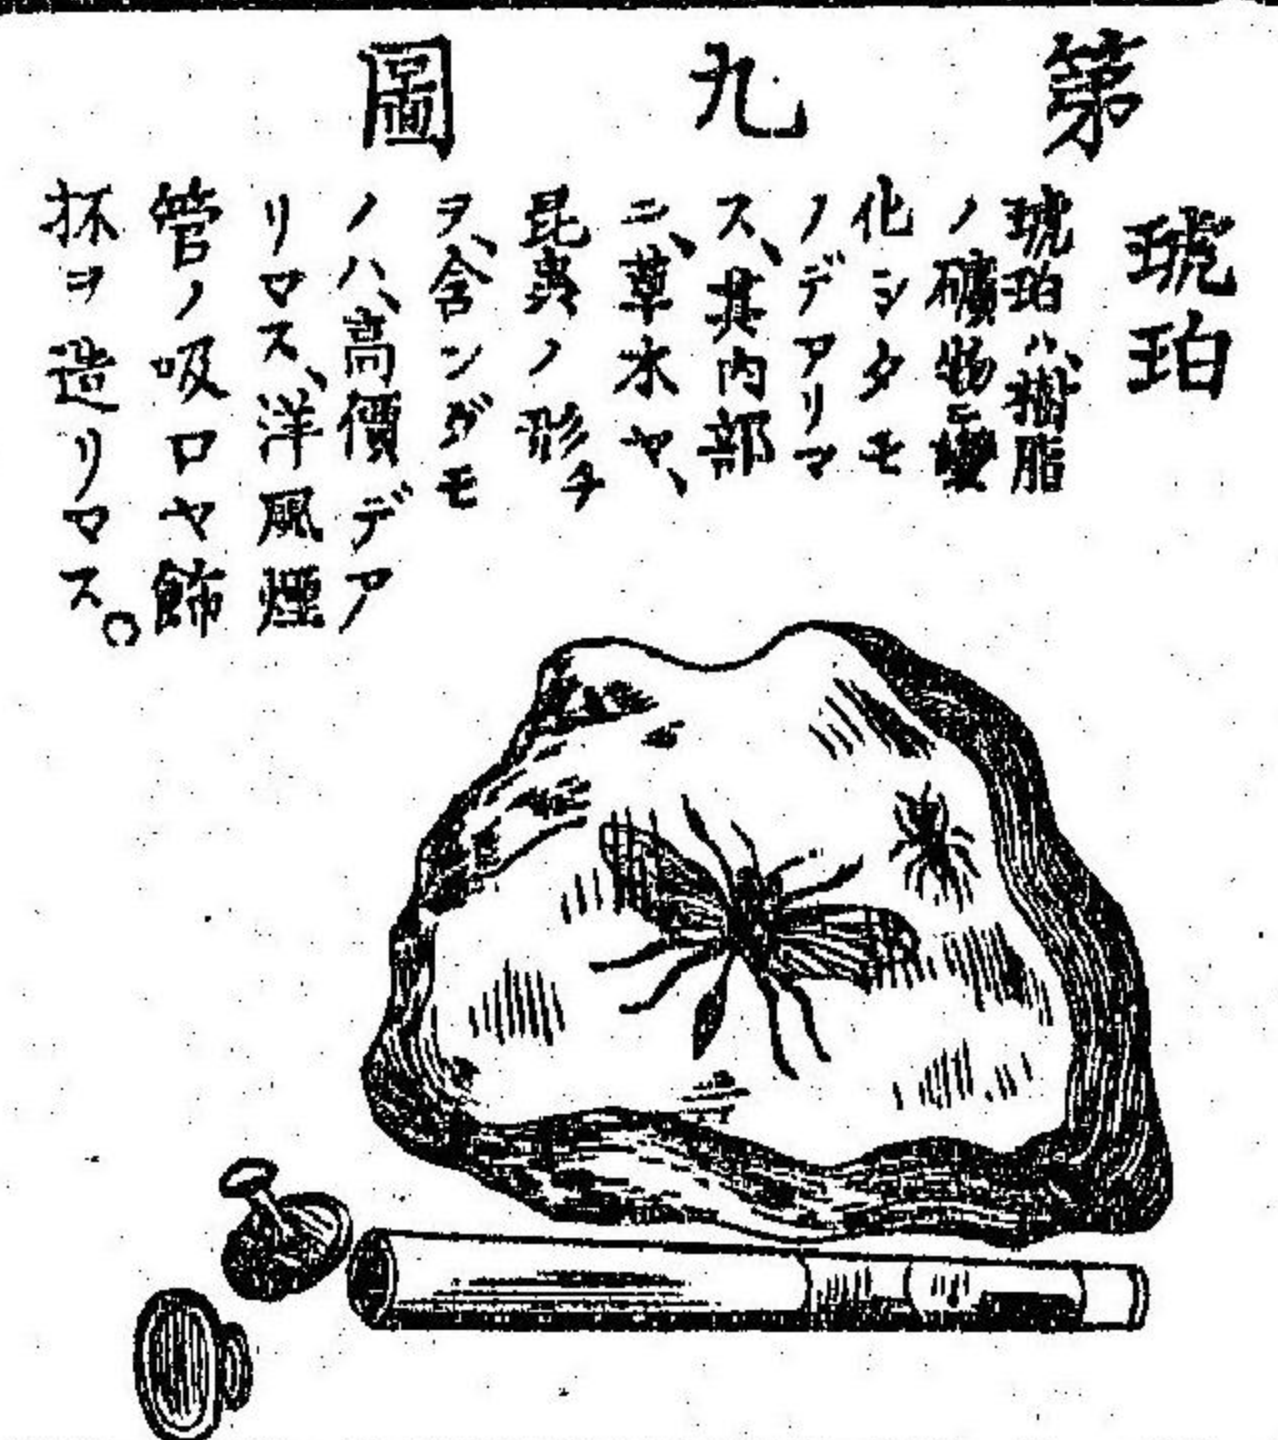 第九圖
琥珀
琥珀ハ、樹脂
ノ礦物ニ變
化シタモ
ノデアリマ
ス、其内部
ニ、草木ヤ、
昆蟲ノ形チ
ヲ、含ンダモ
ノハ、高價デア
リマス、洋風煙
管ノ吸口ヤ飾
抔ヲ造リマス。